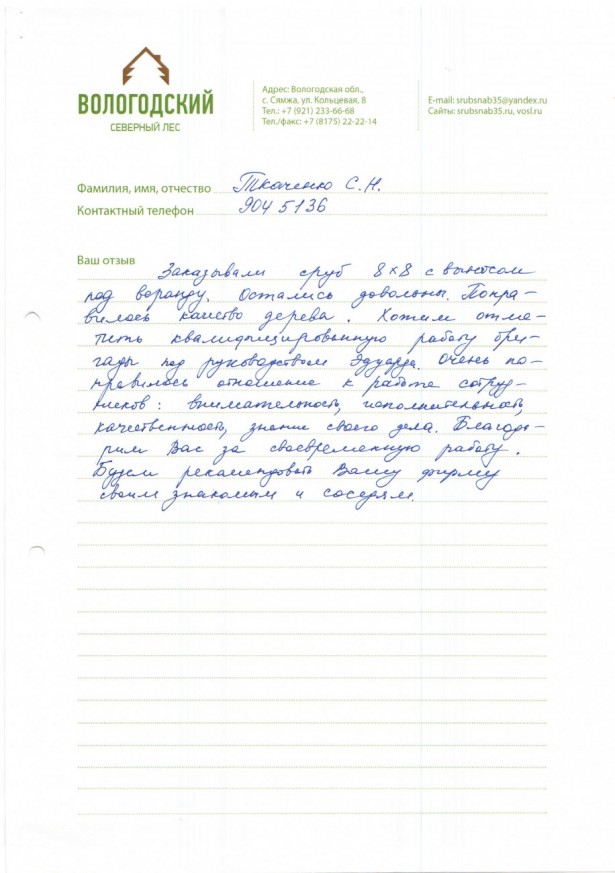 ВОЛОГОДСКИЙ
СЕВЕРНЫЙ ЛЕС
Адрес: Вологодская обл.,
с. Сямжа, ул. Кольцевая, 8
Тел.: +7 (921) 233-66-68
Тел./факс: +7 (8175) 22-22-14
E-mail: srubsnab35@yandex.ru
Сайты: srubsnab35.ru, vosl.ru
Фамилия, имя, отчество Ткаченко С.Н.
Контактный телефон 904 5136
Ваш отзыв
Заказывали сруб 8х8 с выносом
под веранду. Остались довольны. Понра-
вилось качество дерева. Хотим отме-
тить квалифицированную работу бри-
гады под руководством Эдуарда. Очень по-
нравилось отношение к работе сотруд-
ников: внимательность, исполнительность,
качественность, знание своего дела. Благода-
рим Вас за своевременную работу.
Будем рекомендовать Вашу фирму
своим знакомым и соседям.